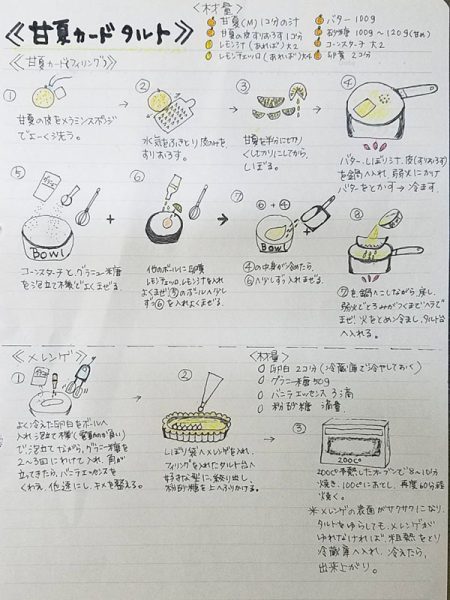 ≪甘夏カード タルト≫
<材量>
甘夏(M) 1コ分の汁
甘夏の皮すりおろす 1コ分
レモン汁(あれば)大2
レモンチェッロ(あれば)大4
バター 100g
砂糖 100g〜120g(甘め)
コーンスターチ 大2
卵黄 2コ分
≪甘夏カード(フィリング)≫
①
甘夏の皮をメラミンスポンジ
でよーく洗う。
②
水気をふきとり皮のみを
すりおろす。
③
甘夏を半分に切り
くしがたにしてから、
しぼる。
④
バター、しぼり汁、皮(すりおろす)
を鍋へ入れ、弱火にかけ
バターをとかす→冷ます。
⑤
Bowl
コーンスターチと、グラニュー糖
を泡立て器でよくまぜる。
+
⑥
他のボールに卵黄
レモンチェッロ、レモン汁を入れ
よくまぜ⑤のボールへ少し
ずつ⑥を入れよくまぜる。
⑦
⑥+④
Bowl
④の中身が冷めたら、
⑥へ少しずつ入れまぜる。
⑧
⑦を、鍋へこしながら、戻し、
弱火でとろみがつくまでヘラで
まぜ、火をとめ冷まし、タルト台
へ入れる。
≪メレンゲ≫
<材量>
卵白 2コ分(冷蔵庫で冷やしておく)
グラニー糖 50g
バニラエッセンス 3滴
粉砂糖 適量
①
よく冷えた卵白をボールへ
入れ泡立て機
で泡立てながら、グラニー糖を
2〜3回にわけて入れ、角が
立ってきたら、バニラエッセンスを
くわえ、低速にし、キメを整える。
②
しぼり袋へメレンゲを入れ、
フィリングを入れたタルト台へ
好きな型に、絞り出し
粉砂糖を上へふりかける。
③
200℃
200℃予熱したオーブンで8〜10分
焼き、100℃におとし、再度60分程
焼く。
※メレンゲの表面がサクサクになり、
タルトをゆらしても、メレンゲが
ゆれなければ 粗熱をとり
冷蔵庫へ入れ、冷えたら、
出来上がり。